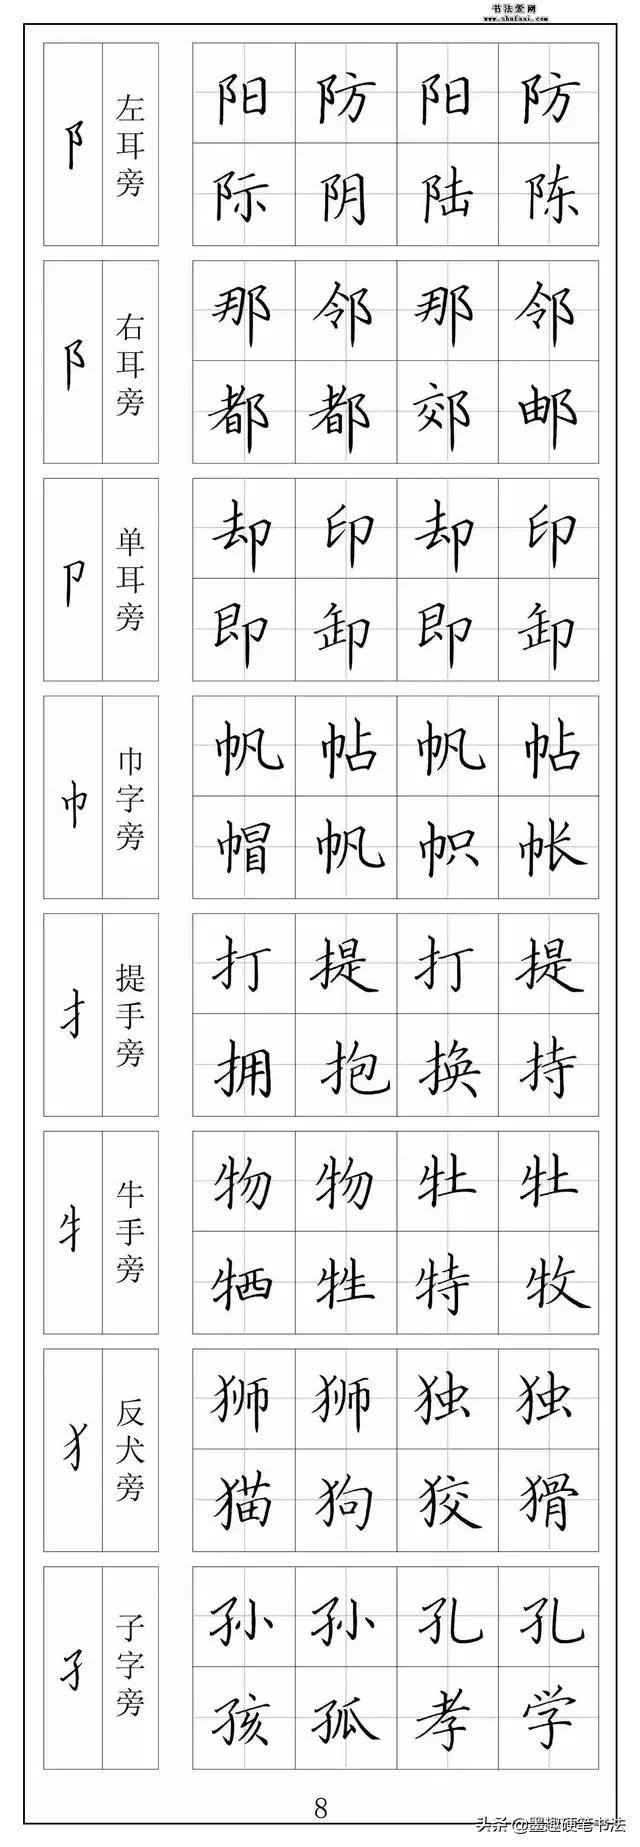 书法爱网
www.shufaai.com
阝
左耳旁
阳防阳防
际阴陆陈
阝
右耳旁
那邻那邻
都都郊邮
卩
单耳旁
却印却印
即卸即卸
巾
巾字旁
帆帖帆帖
帽帆帜帐
扌
提手旁
打提打提
拥抱换持
牜
牛手旁
物物牡牡
牺牲特牧
犭
反犬旁
狮狮独独
猫狗狡猾
孑
子字旁
孙孙孔孔
孩孤孝学
8
头条@墨趣硬笔书法